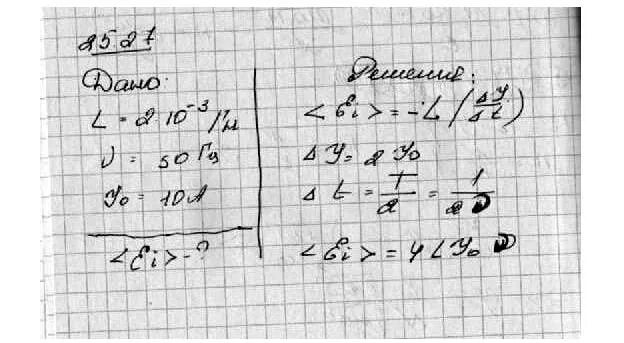 25.27
Дано:
L = 2·10⁻³ Гн
ν = 50 Гц
У₀ = 10 А
<Ei> - ?
Решение:
<Ei> = -L (ΔУ/Δt)
ΔУ = 2У₀
Δt = T/2 = 1/2ν
<Ei> = 4LУ₀ν